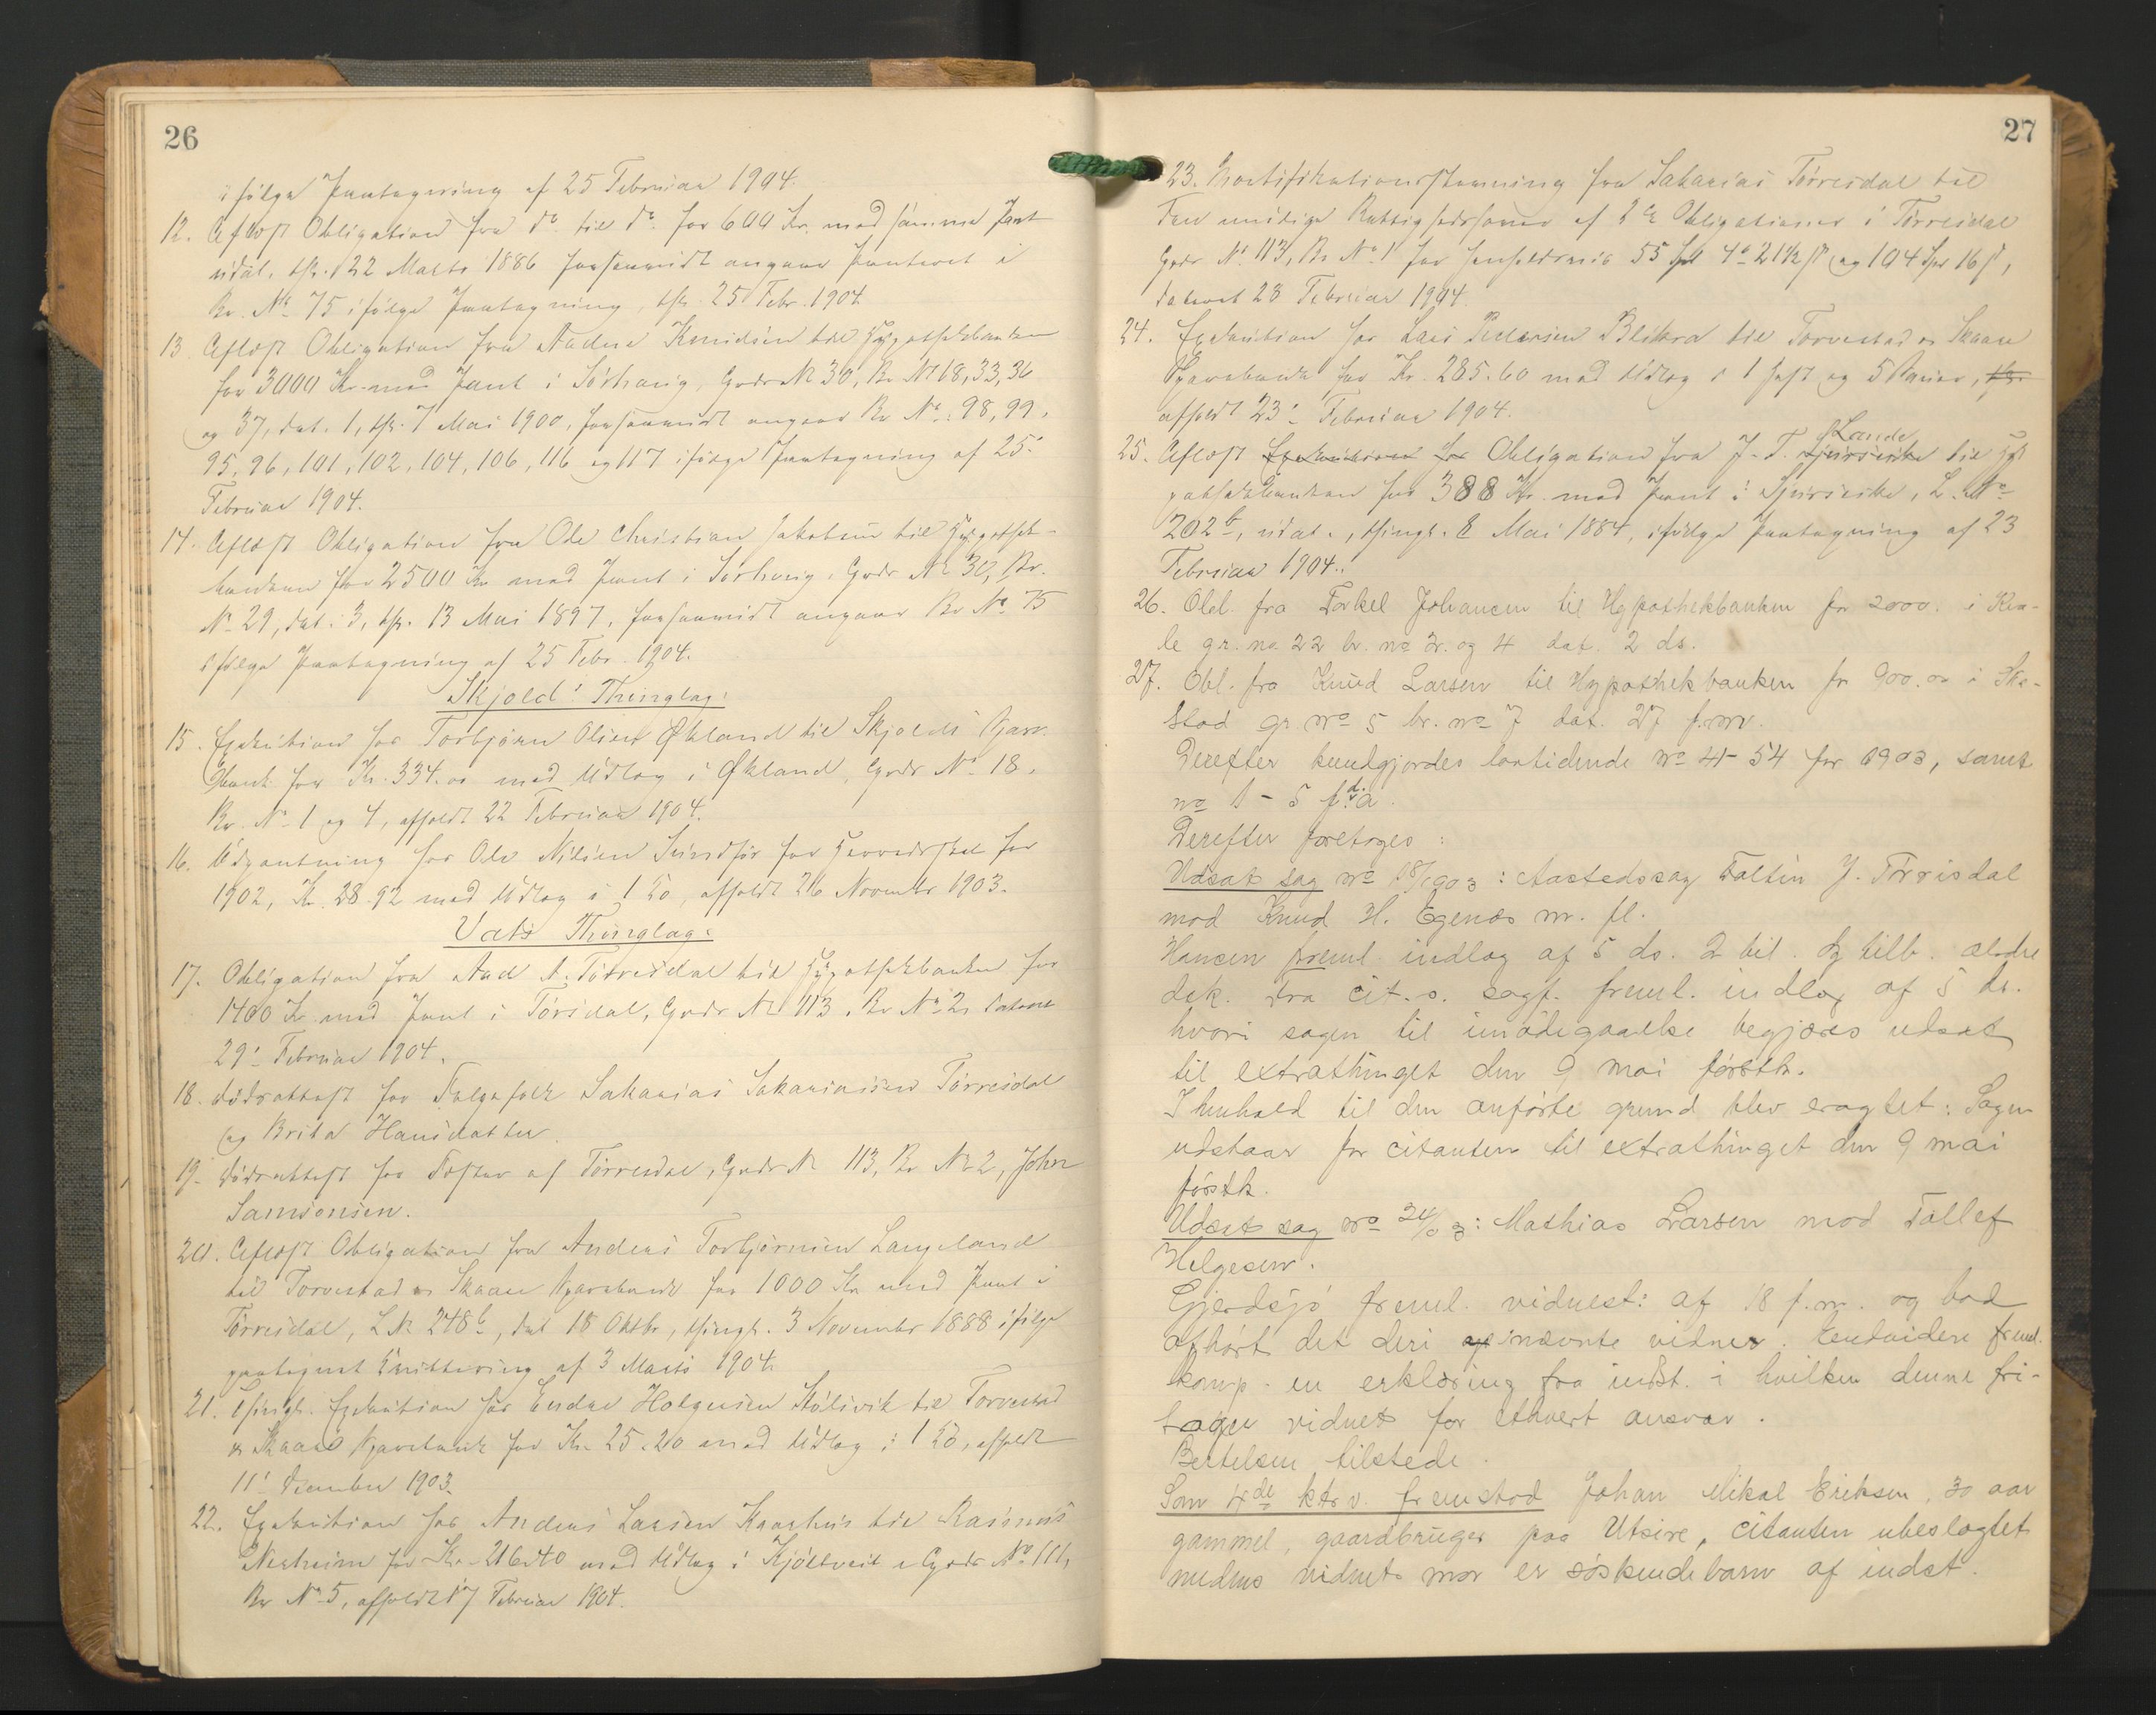 26
ifølge Paategning af 25 Februar 1904.
12. Aflæst Obligation fra do til do for 600 Kr. med samme Pant
udat. thgl. 22 Marts 1886 forsaavidt angaar Pantet i
Br. No 75 ifølge Paategning, thgl. 25 Febr. 1904.
13. Aflæst Obligation fra Aadne Knudsen til Hypothekbanken
for 3000 Kr. med Pant i Sörhaug, Gards No 30, Br. No 18, 33, 36
og 37, dat. 1, thgl. 7 Mai 1900, forsaavidt angaar Br. No: 98, 99,
95, 96, 101, 102, 104, 106, 116 og 117 ifølge Paategning af 25.
Februar 1904.
14. Aflæst Obligation fra Ole Christian Jakobsen til Hypothek-
banken for 2500 Kr med Pant i Sörhaug, Gards No 30, Br.
No 29, dat. 3, thgl. 13 Mai 1897, forsaavidt angaar Br No 75
ifølge Paategning af 25 Febr. 1904.
Skjold Thinglag:
15. Exekution hos Torbjörn Olsen Økland til Skjolds Spare-
bank for Kr. 334.00 med Udlæg i Økland, Gards No 18,
Br. No 1 og 4, afholdt 22 Februar 1904.
16. Udpantning hos Ole Nilsen Sundfør for Herredsskat for
1902, Kr. 28.92 med Udlæg i 1 Ko, afholdt 26 November 1903.
Vats Thinglag:
17. Obligation fra Aad A. Törresdal til Hypothekbanken for
1400 Kr med Pant i Törsdal, Gards No 113, Br. No 2, dateret
29. Februar 1904.
18. Dødsattest for Folgefolk Sakarias Sakariassen Törresdal
og Brita Hansdatter.
19. Dødsattest for Fæster af Törresdal, Gards No 113, Br No 2, John
Samsonsen.
20. Aflæst Obligation fra Anders Torbjörnsen Langeland
til Torvestad og Skaare Sparebank for 1000 Kr med Pant i
Törresdal, L No 248b, dat 18 Oktbr, thingl. 3 November 1888 ifølge
paategnet Kvittering af 3 Marts 1904.
21. Thingl. Exekution hos Endre Holgersen Stölsvik til Torvestad
og Skaare Sparebank for Kr. 25.20 med Udlæg i 1 Ko, afholdt
11. December 1903.
22. Exekution hos Anders Larsen Kaarhus til Rasmus
Nesheim for Kr. 216.40 med Udlæg i Kjölltveit, Gards No 111,
Br No 5, afholdt 17 Februar 1904.
27
23. Mortifikationsstevning fra Sakarias Törresdal til
den mulige Rettighedshaver af 2de Obligationer i Törresdal
Gards No 113, Br No 1 for henholdsvis 55 Spd 4 21½ ß og 104 Spd 16 ß,
dateret 23 Februar 1904.
24. Exekution hos Lars Pedersen Blikra til Torvestad og Skaare
Sparebank for Kr. 285.60 med Udlæg i 1 Hest og 5 Kreier, thgl.
afholdt 23. Februar 1904.
25. Aflæst Exekution hos Obligation fra J. T. Sjursvike Lande til Hy-
pothekbanken for 388 Kr. med Pant i Sjursvike, L. No
202b, udat., thingl. 8 Mai 1884, ifølge Paategning af 23
Februar 1904.
26. Obl. fra Torkel Johansen til Hypothekbanken for 2000. i Kva-
le gr. no 22 br. no 3. og 4 dat. 2 ds.
27. Obl. fra Knud Larsen til Hypothekbanken for 900.00 i Ska-
stad gr no 5 br. no 7 dat. 27 f.m.
Derefter kundgjordes lovtidende no 41-54 for 1903, samt
no 1-5 f. d. a.
Derefter foretoges:
Udsat sag no 18/1903: Aastedssag Taltin J. Törrisdal
mod Knud H. Egenæs m. fl.
Hansen freml. indlæg af 5 ds. 2 bil. og tilb. ældre
dok. Fra cit.s. sagf. freml. indlæg af 5 ds.
hvori sagen til imødegaaelse begjæres udsat
til extrathinget den 9 mai førstk.
I henhold til den anførte grund blev eragtet: Sagen
udstaar for citanten til extrathinget den 9 mai
førstk.
Udsat sag no 24/03: Mathias Larsen mod Tollef
Helgesen.
Gjerdsjø freml. vidnest: af 18 f.m. og bad
afhørt det deri nævnte vidne. Endvidere freml.
komp. en erklæring fra indst. i hvilken denne fri-
tager vidnet for ethvert ansvar.
Bertelsen tilstede.
Som 4de ktr v. fremstod Johan Mikal Eriksen, 30 aar
gammel, gaardbruger paa Utsire, citanten ubeslægtet
medens vidnets mor er søskendebarn af indst.